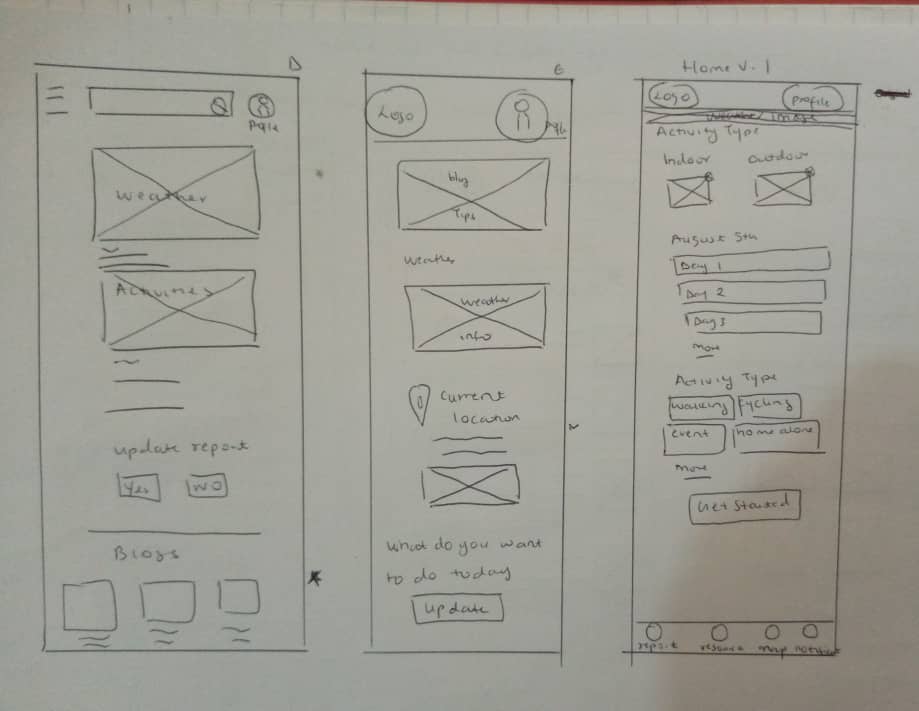 D
Profile
Weather
Activities
Update report
Yes
NO
Blogs
6
Logo
blog
Tips
Weather
Weather
info
Current
location
What do you want
to do today
Update
Home V. 1
Logo
Profile
Weather Image
Activity Type
Indoor
Outdoor
August 5th
Day 1
Day 2
Day 3
More
Activity Type
Walking
Cycling
event
home alone
More
Get Started
report
resource
map